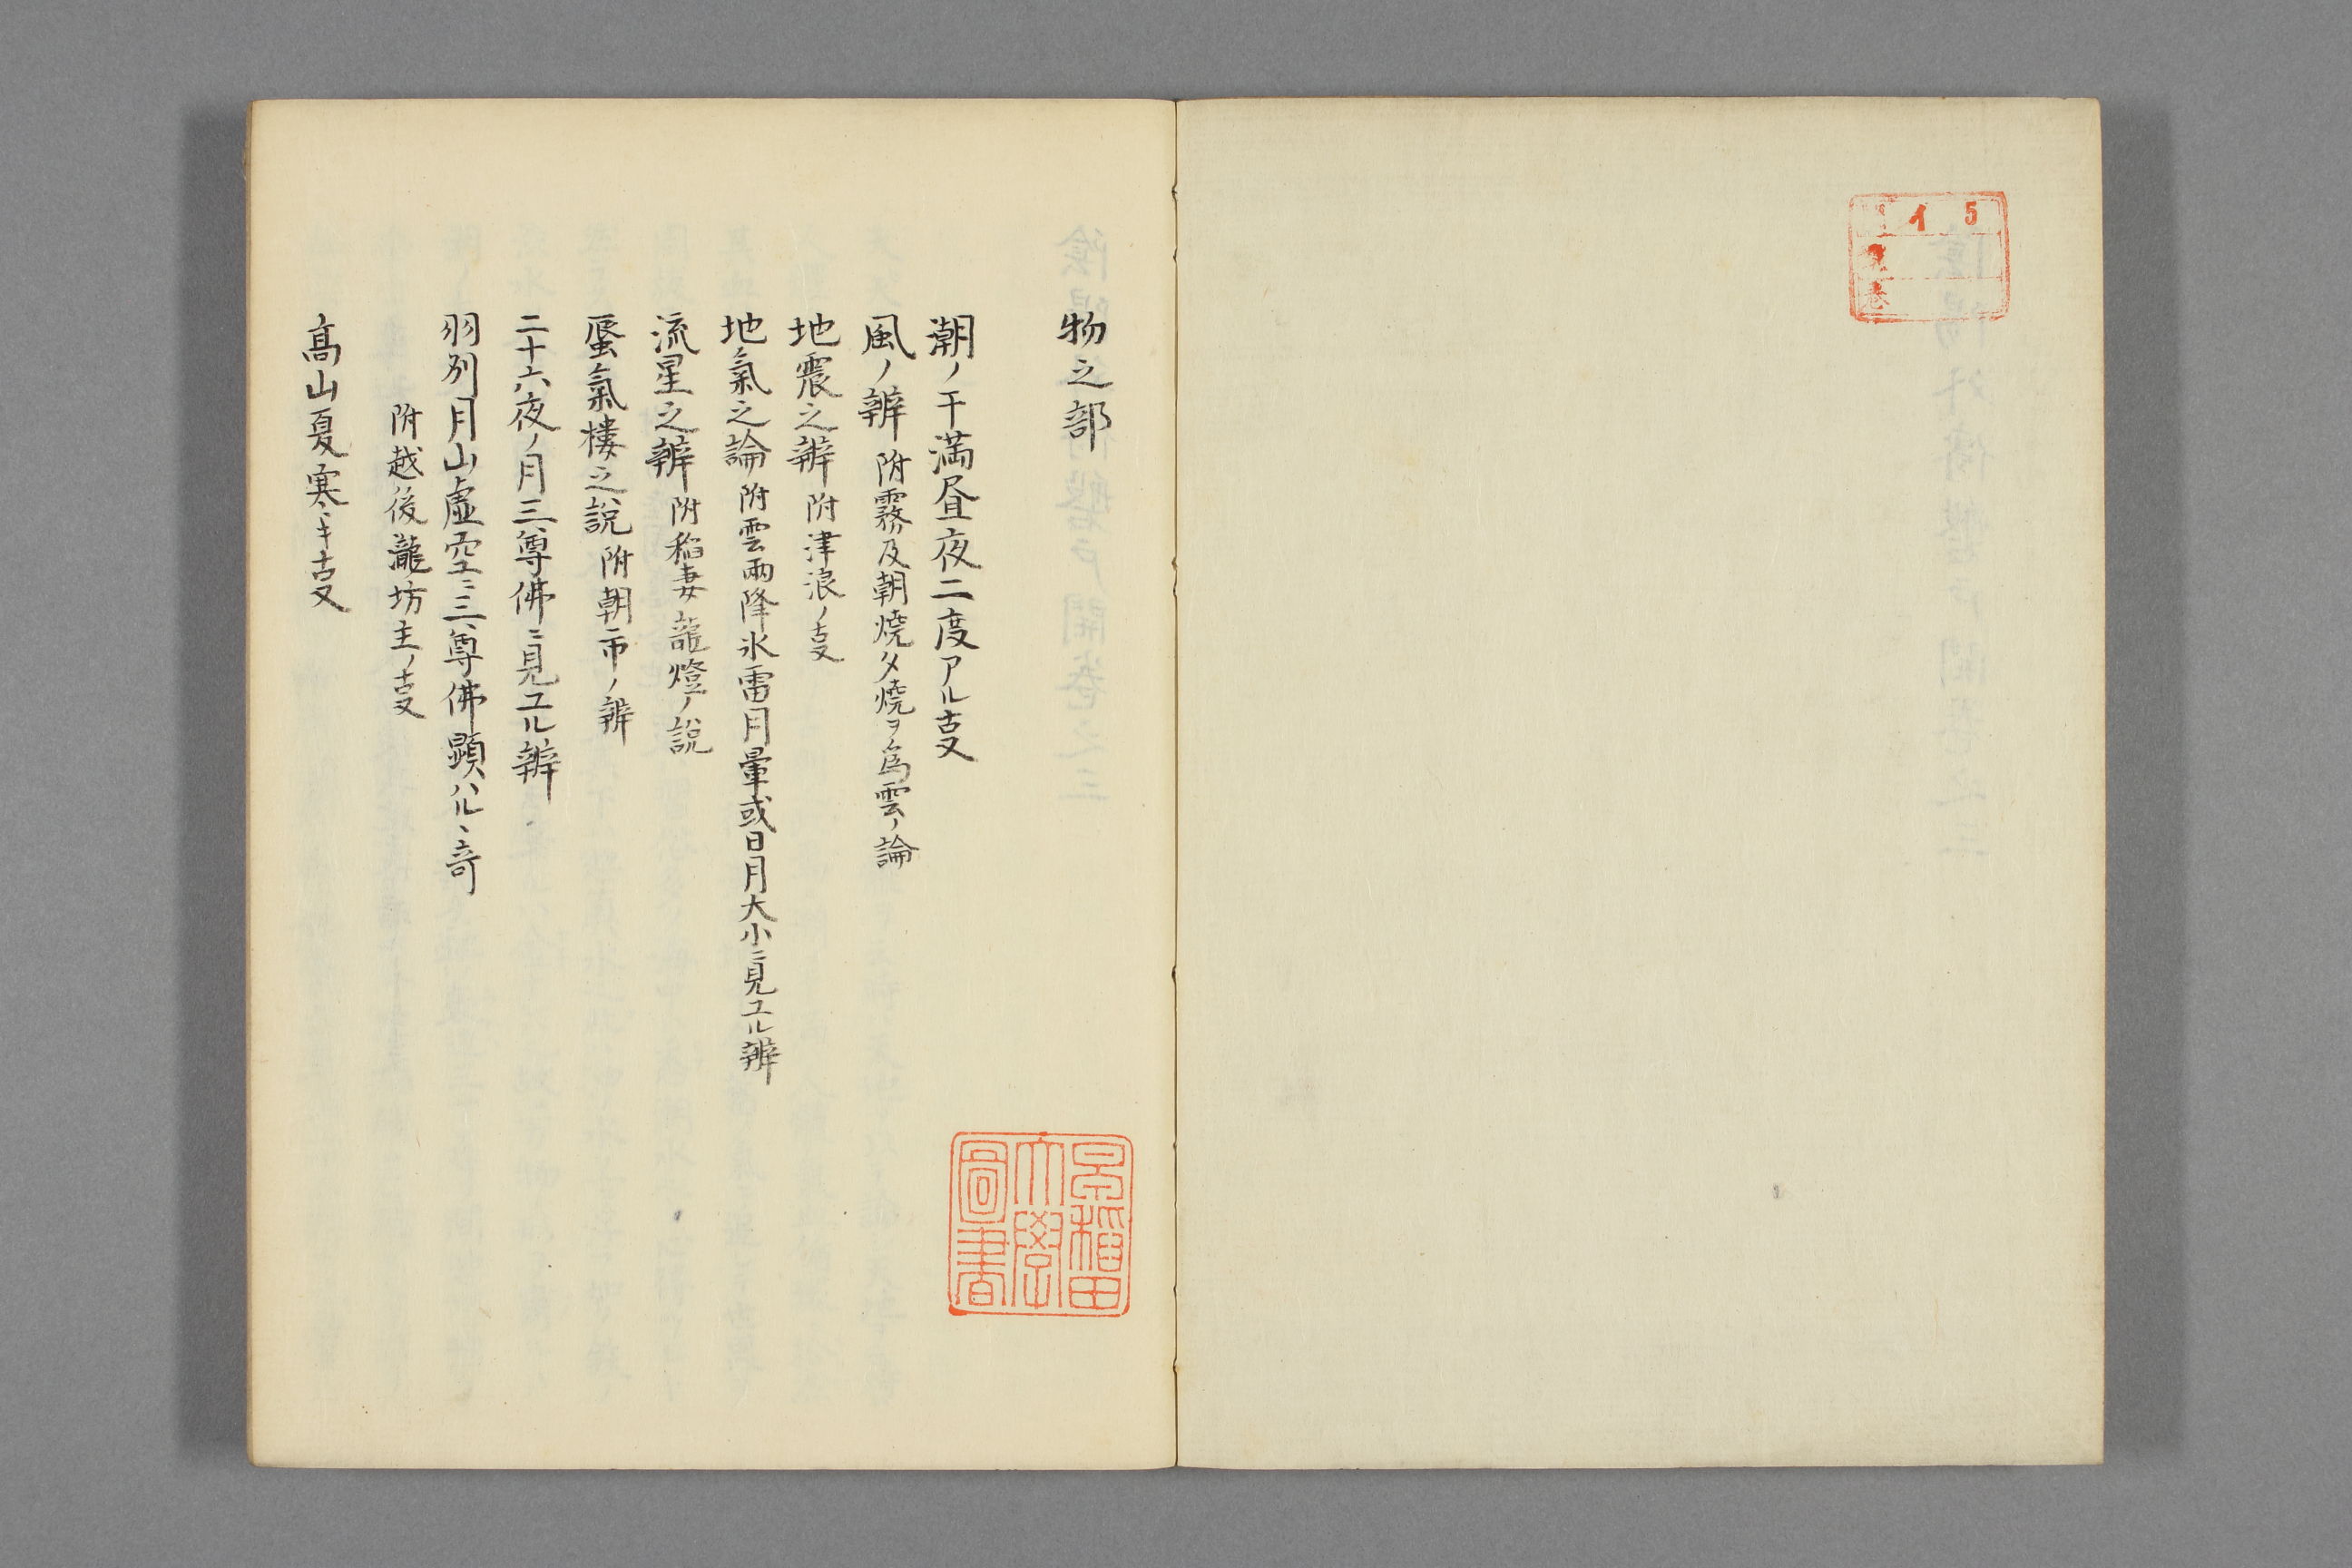 イ 5
巻
物之部
潮ノ干満昼夜二度アル叓
風ノ辨 附霧及朝焼夕焼ヲ為雲ノ論
地震之辨 附津浪ノ叓
地氣之論 附雲雨降氷雷月暈或日月大小ニ見ユル辨
流星之辨 附稲妻龍燈ノ説
蜃氣樓之説 附朝市ノ辨
二十六夜ノ月三尊佛ニ見ユル辨
羽州月山虚空ニ三尊佛顕ハルヽ奇
附越後瀧坊主ノ叓
髙山夏寒キ叓
早稲田
大學
圖書